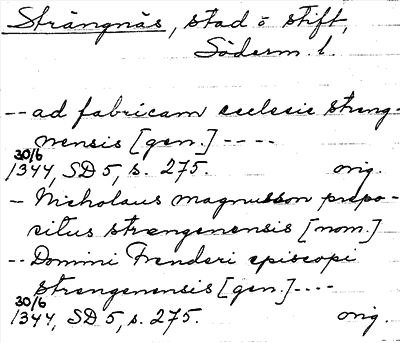 Strängnäs, stad o stift,
Söderm. l.
-- ad fabricam ecclesie streng-
nensis [gen.] ----
30/6
1344, SD 5, s. 275. orig.
- Nicholaus magnusson prepo-
situs strengenensis [nom.]
-- Domini Frenderi episcopi
strengenensis [gen.] ----
30/6
1344, SD 5, s. 275. orig.